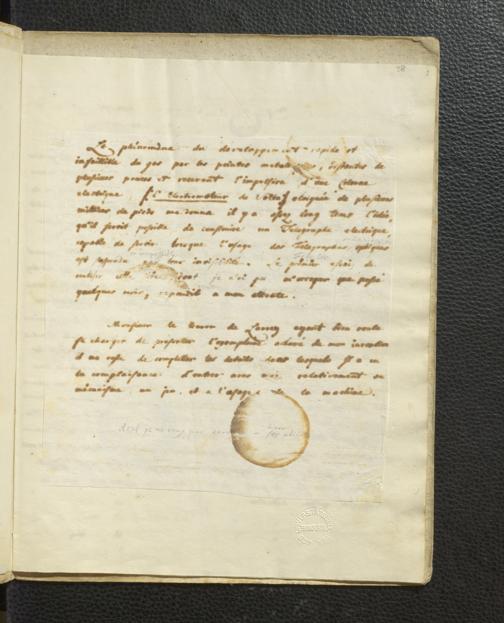 Le phénomène du developpement rapide et
infaillible du gas par les pointes metalliques, distantes de
plusieurs pouces et recevant l'impulsion d'une Colonne
electrique, (l'Electromoteur de Volta) eloignée de plusieurs
milliers de pieds me donna il y a assez long tems l'idée,
qu'il seroit possible de construire un Telegraphe electrique,
capable de servir lorsque l'usage des Telegraphes optiques
est par leur invisibilité. Le premier essai de
cette je n'ai pu m'occuper que passé
quelques mois, repondit a mon attente.
Monsieur le Baron de Larrey ayant bien voulu
se charger de presenter l'exemplaire de mon invention
il ne reste de completter les details dans lesquels Il a eu
la complaisance d'entrer avec moi relativement au
mécanisme, au jeu, et a l'usage de la machine.